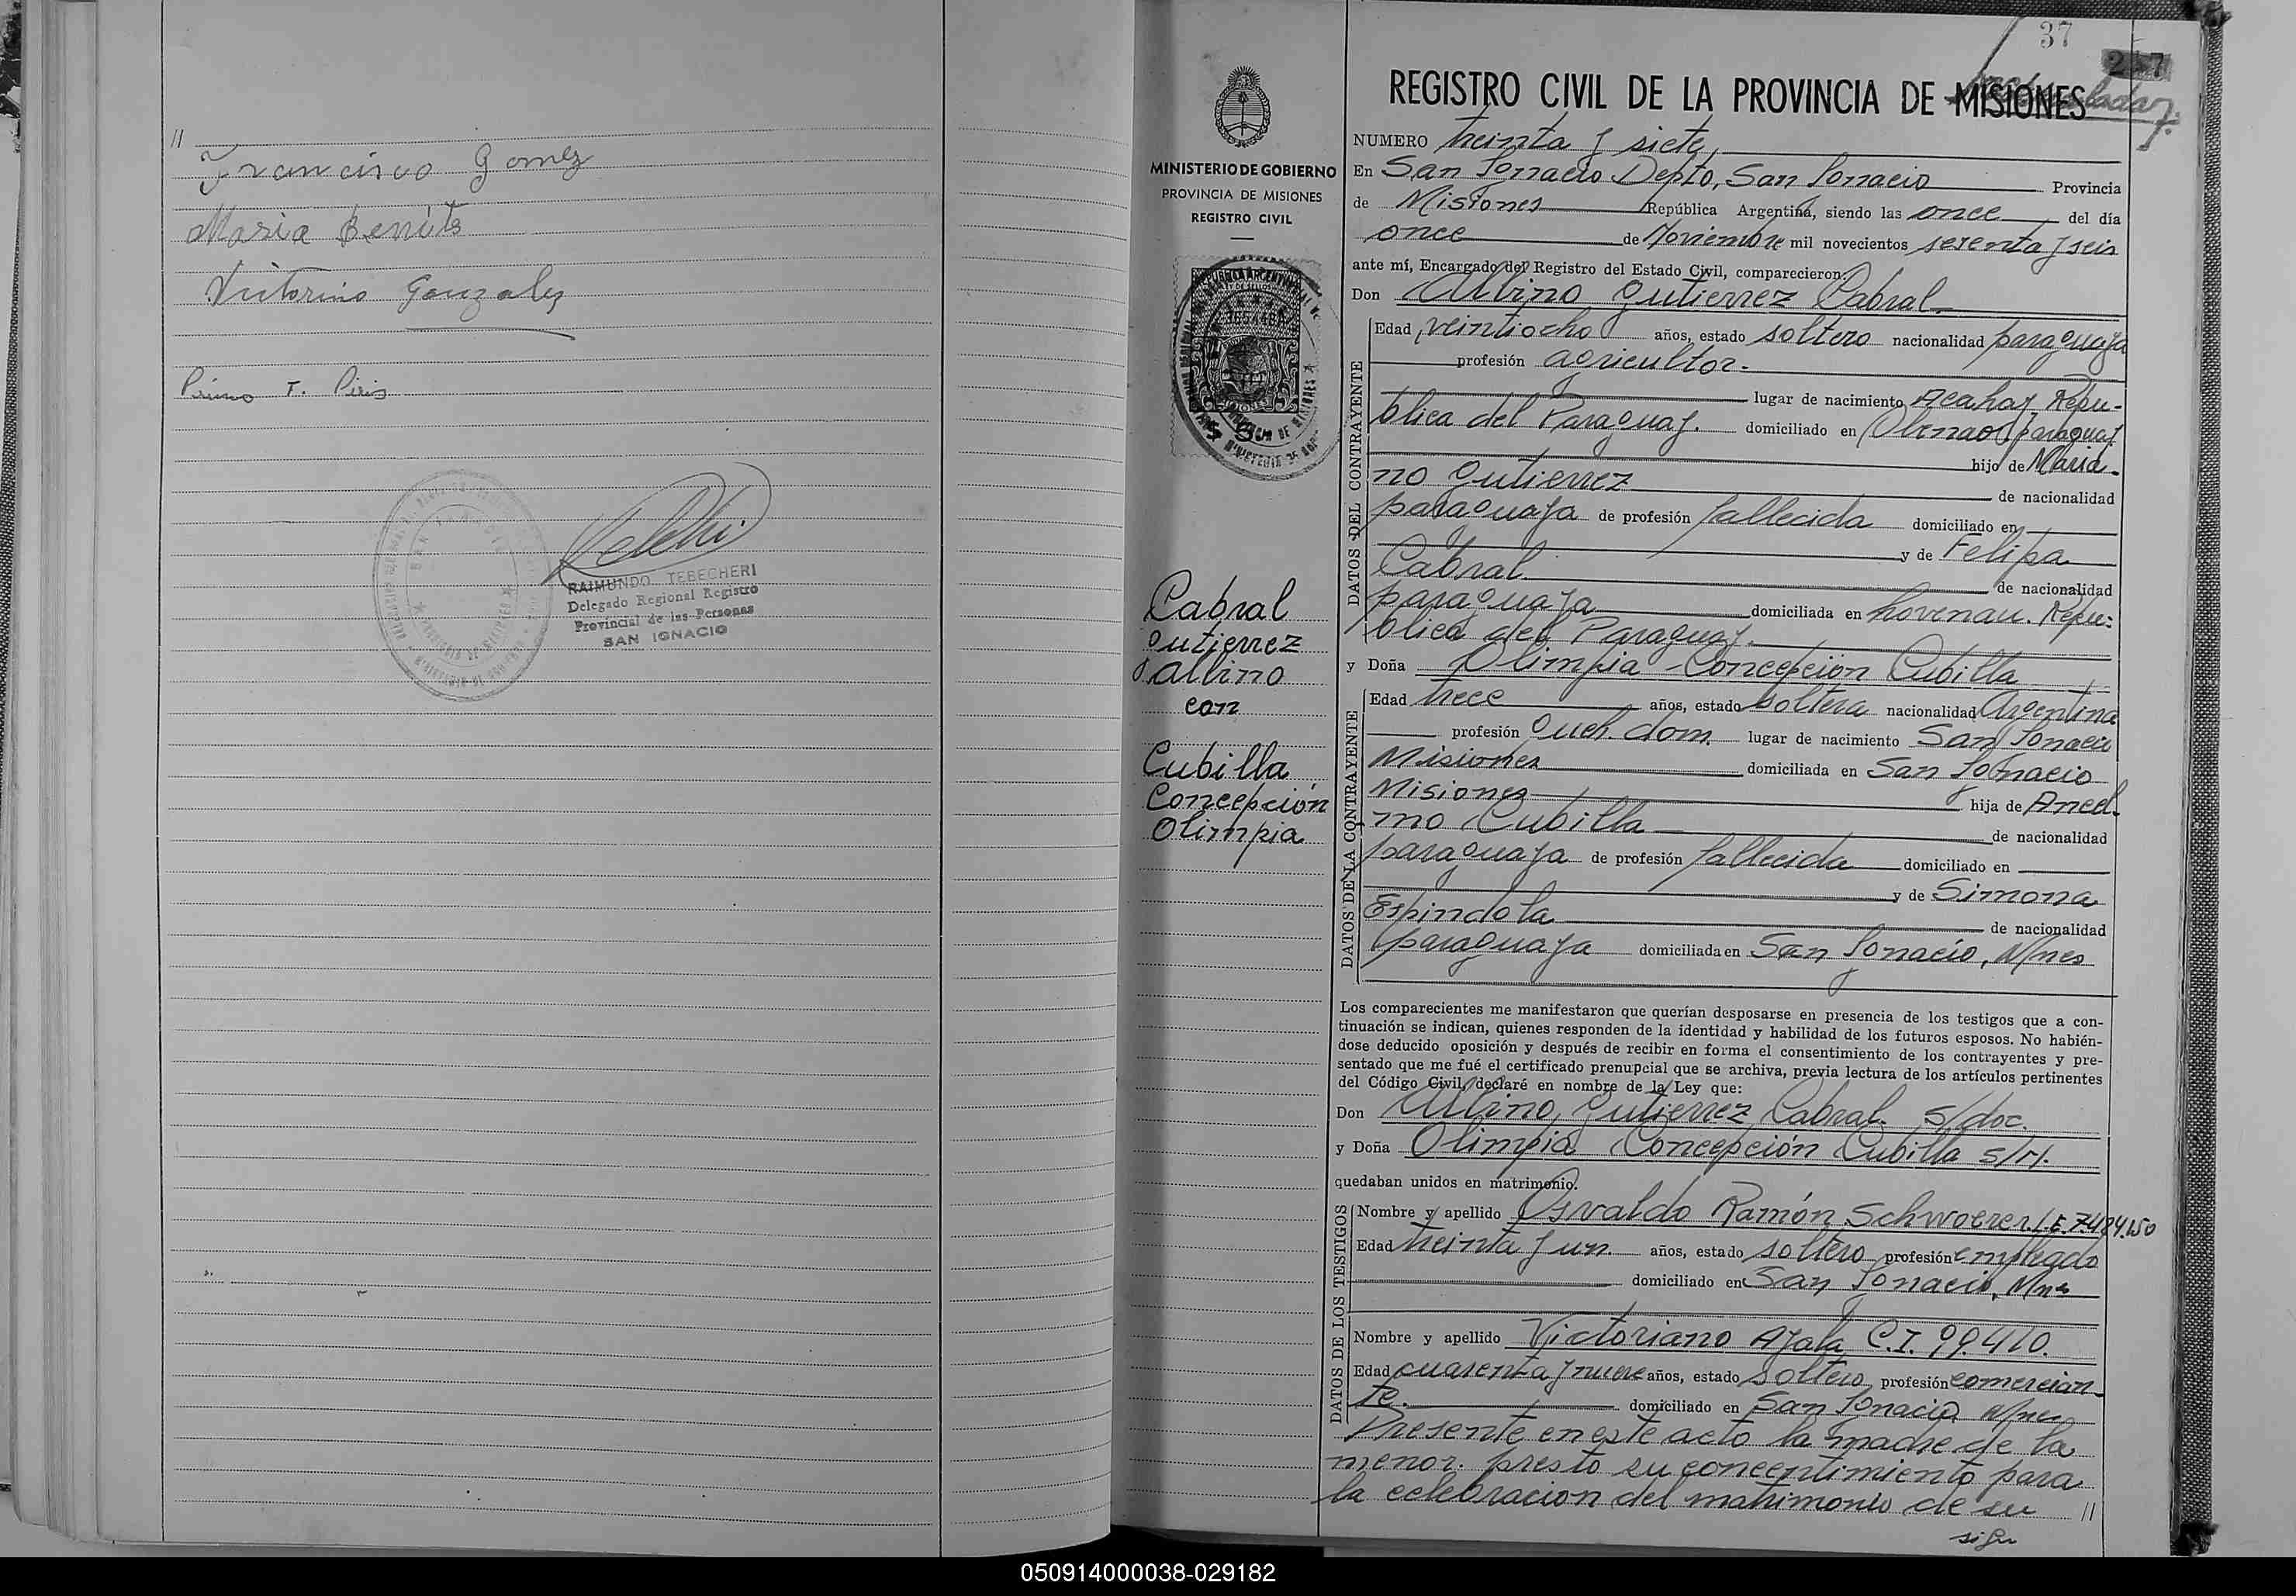 //
Francisco Gomez
Maria Benitz
Victorino Gonzalez
Primo T. Piris
RAIMUNDO TEBECHERI
Delegado Regional Registro
Provincial de las Personas
SAN IGNACIO
37
REGISTRO CIVIL DE LA PROVINCIA DE MISIONES
MINISTERIO DE GOBIERNO
PROVINCIA DE MISIONES
REGISTRO CIVIL
Cabral
Gutierrez
Albino
con
Cubilla
Concepción
Olimpia
NUMERO treinta y siete,
En San Ignacio Depto, San Ignacio Provincia
de Misiones República Argentina, siendo las once del día
once de Noviembre mil novecientos sesenta y seis
ante mí, Encargado del Registro del Estado Civil, comparecieron:
Don Albino Gutierrez Cabral
DATOS DEL CONTRAYENTE
Edad veintiocho años, estado soltero nacionalidad paraguaya
profesión agricultor.
lugar de nacimiento Acahay Repu-
blica del Paraguay. domiciliado en Obenao, paraguay
hijo de Maria-
no Gutierrez de nacionalidad
paraguaya de profesión fallecida domiciliado en
y de Felipa
Cabral de nacionalidad
paraguaya domiciliada en hovenau. Repu:
blica del Paraguay.
y Doña Olimpia Concepción Cubilla
DATOS DE LA CONTRAYENTE
Edad trece años, estado soltera nacionalidad Argentina
profesión queh. dom. lugar de nacimiento San Ignacio
Misiones domiciliada en San Ignacio
Misiones hija de Ancel-
mo Cubilla de nacionalidad
paraguaya de profesión fallecida domiciliado en
y de Simona
Espindola de nacionalidad
paraguaya domiciliada en San Ignacio, Mnes
Los comparecientes me manifestaron que querían desposarse en presencia de los testigos que a con-
tinuación se indican, quienes responden de la identidad y habilidad de los futuros esposos. No habién-
dose deducido oposición y después de recibir en forma el consentimiento de los contrayentes y pre-
sentado que me fué el certificado prenupcial que se archiva, previa lectura de los artículos pertinentes
del Código Civil, declaré en nombre de la Ley que:
Don Albino Gutierrez Cabral. s/doc.
y Doña Olimpia Concepción Cubilla s/n.
quedaban unidos en matrimonio.
DATOS DE LOS TESTIGOS
Nombre y apellido Osvaldo Ramón Schwoerer. L.E. 7.484.150
Edad treinta y un años, estado soltero profesión empleado
domiciliado en San Ignacio, Mnes
Nombre y apellido Victoriano Ayala C.I. 99.410.
Edad cuarenta y nueve años, estado soltero profesión comercian-
te. domiciliado en San Ignacio Mnes
Presente en este acto la madre de la
menor. presto su concentimiento para
la celebracion del matrimonio de su //
sigu
050914000038-029182